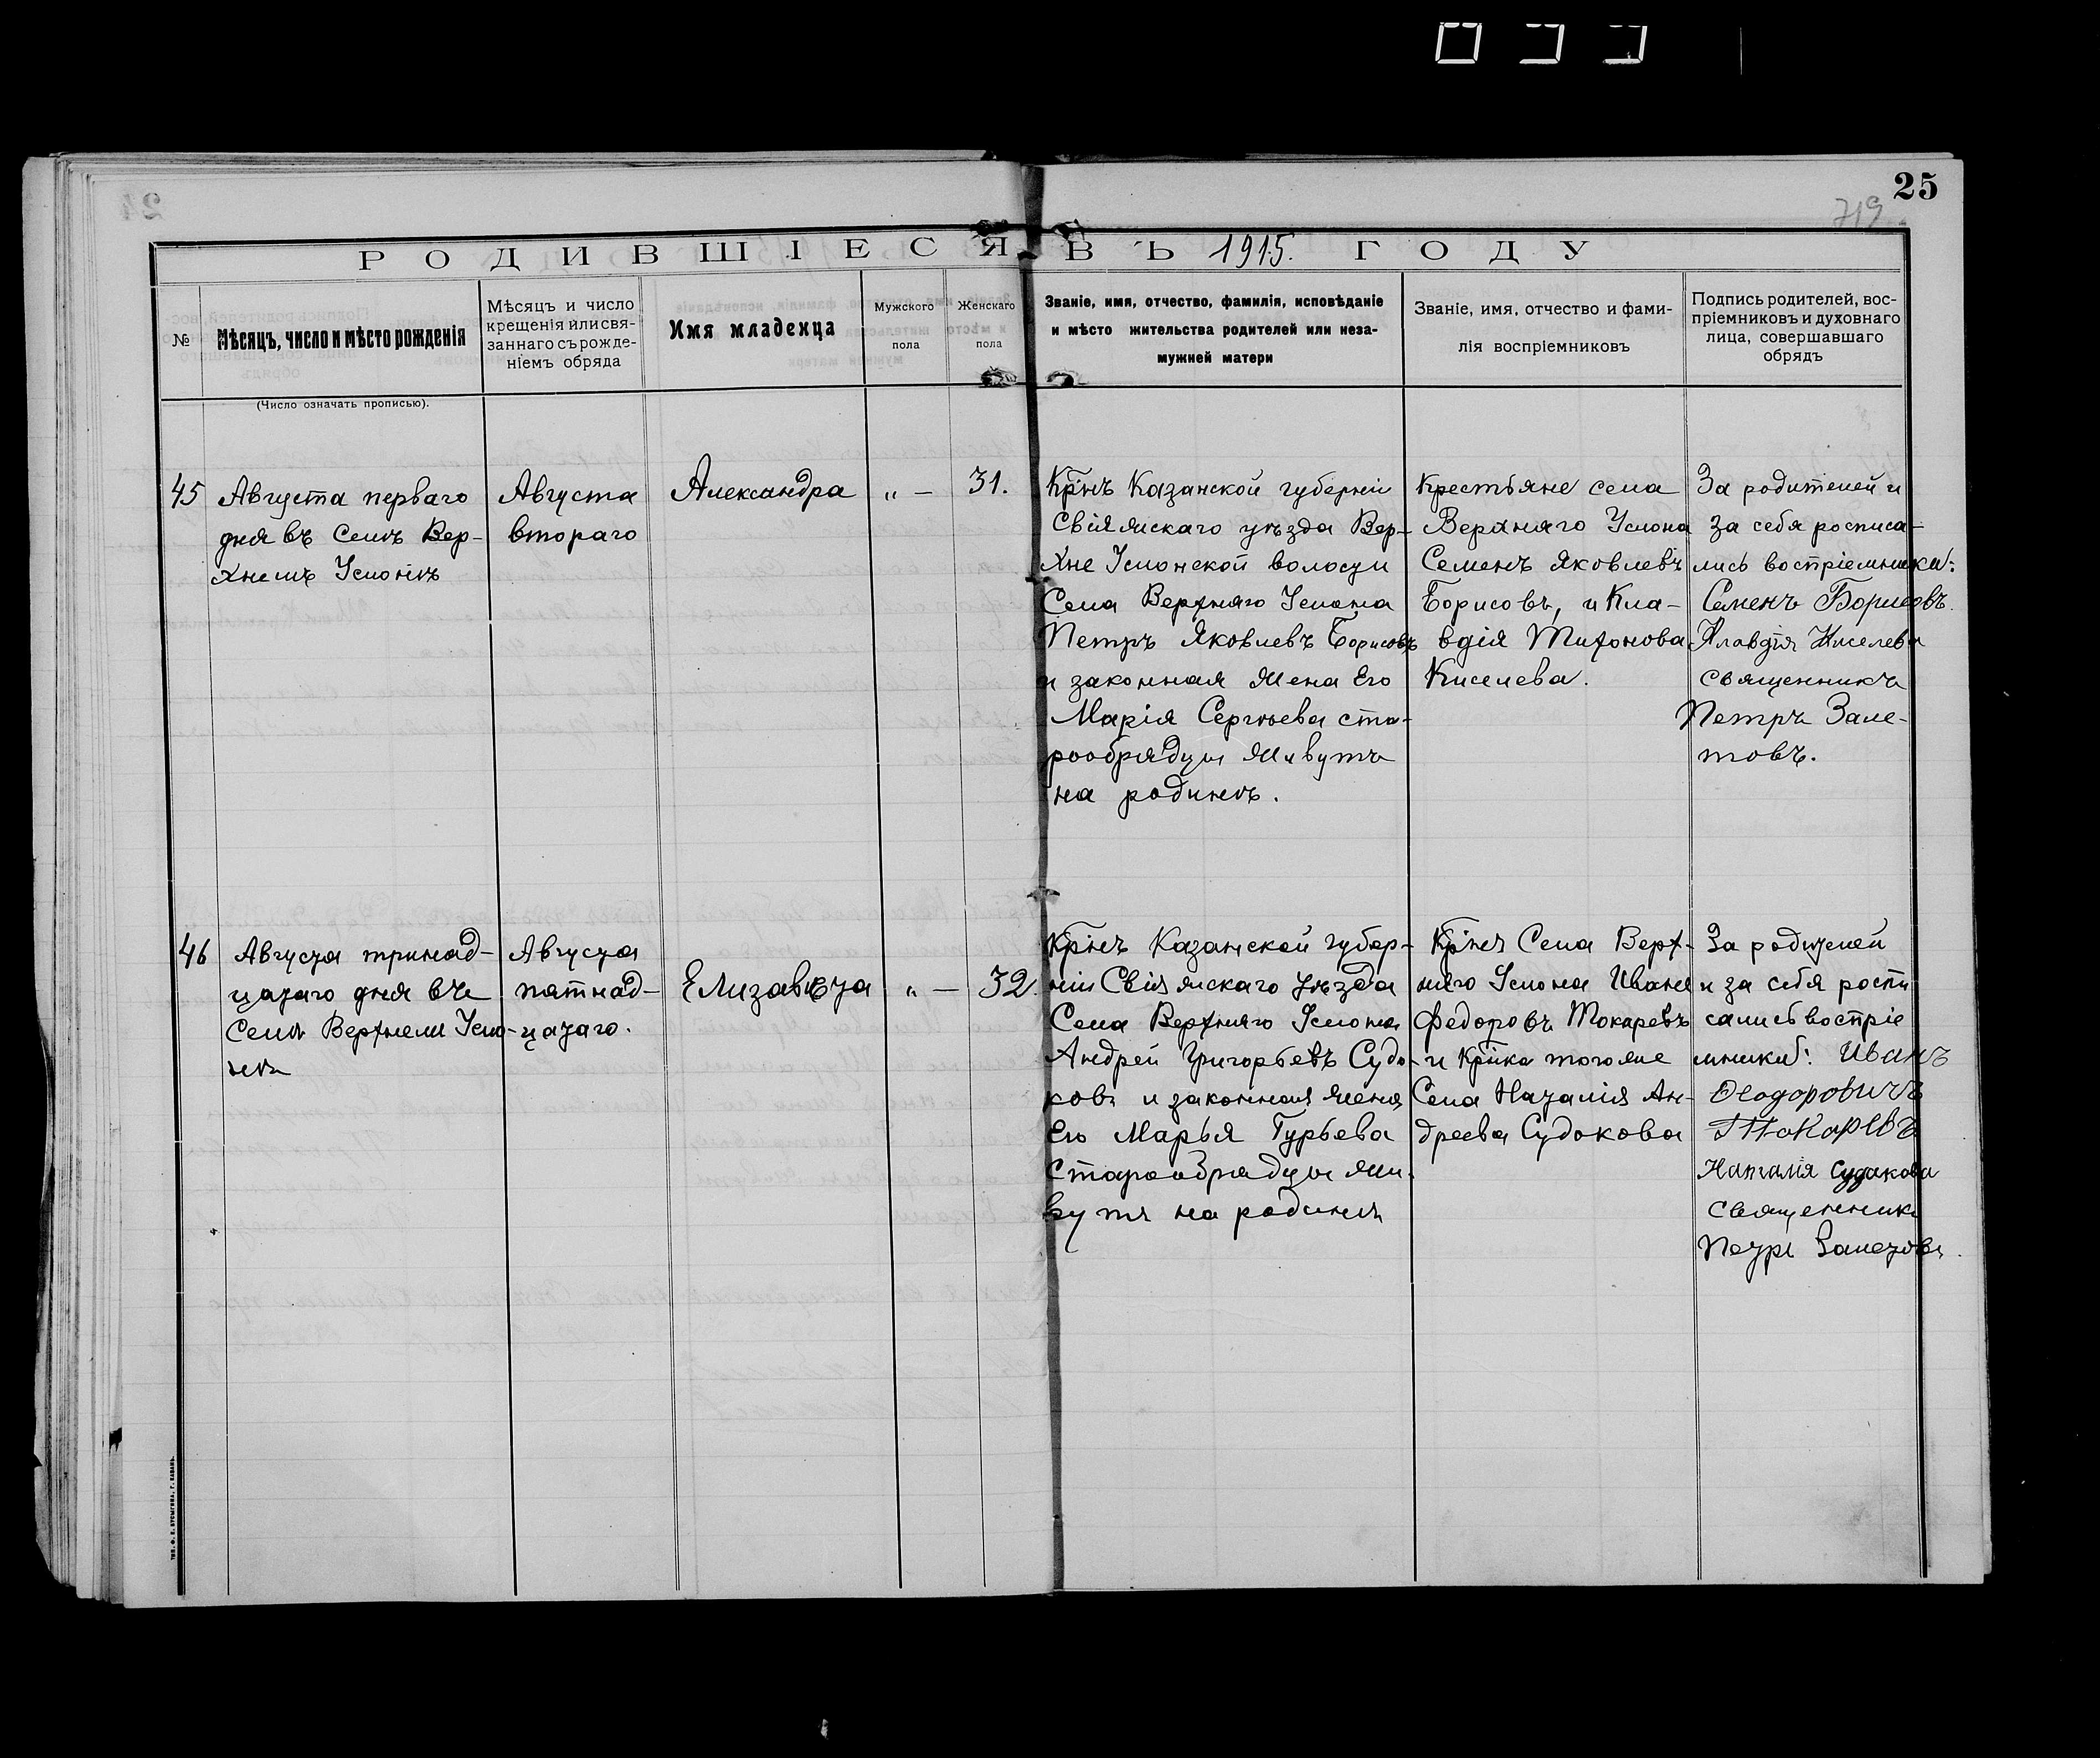 25
719
РОДИВШІЕСЯ ВЪ 1915. ГОДУ
№
Мѣсяцъ, число и мѣсто рожденія
(Число означать прописью).
Мѣсяцъ и число
крещенія или свя-
заннаго съ рожде-
ніемъ обряда
Имя младенца
Мужского
пола
Женскаго
пола
Званіе, имя, отчество, фамилія, исповѣданіе
и мѣсто жительства родителей или неза-
мужней матери
Званіе, имя, отчество и фами-
лія воспріемниковъ
Подпись родителей, вос-
пріемниковъ и духовнаго
лица, совершавшаго
обрядъ
45
Августа перваго
дня въ Селѣ Вер-
хнемъ Услонѣ
Августа
втораго
Александра
„ —
31.
Крнъ Казанской губерніи
Свіяжскаго уѣзда Вер-
хне Услонской волости
Села Верхняго Услона
Петръ Яковлевъ Борисовъ
и законная жена Его
Марія Сергѣева ста-
рообрядцы живутъ
на родинѣ.
Крестьяне села
Верхняго Услона
Семенъ Яковлевъ
Борисовъ, и Кла-
вдія Тихонова
Киселева.
За родителей и
за себя росписа-
лись воспріемники:
Семенъ Борисовъ.
Клавдія Киселева
священникъ
Петръ Зале-
товъ.
46
Августа тринад-
цатаго дня въ
Селѣ Верхнем Усло-
нѣ
Августа
пятнад-
цатаго.
Елизавета
„ —
32.
Крінъ Казанской губер-
ніи Свіяжскаго уѣзда
Села Верхняго Услона
Андрей Григорьевъ Судо-
ковъ и законная жена
Его Марья Гурьева
Старообрядцы жи-
вутъ на родинѣ
Крінъ Села Верх-
няго Услона Иванъ
Федоровъ Токаревъ
и Крінка тогоже
Села Наталія Ан-
дреева Судокова
За родителей
и за себя роспи
сались воспріе
мники: Иванъ
Ѳеодоровичъ
Токаревъ
Наталія Судакова
священникъ
Петръ Залетовъ.